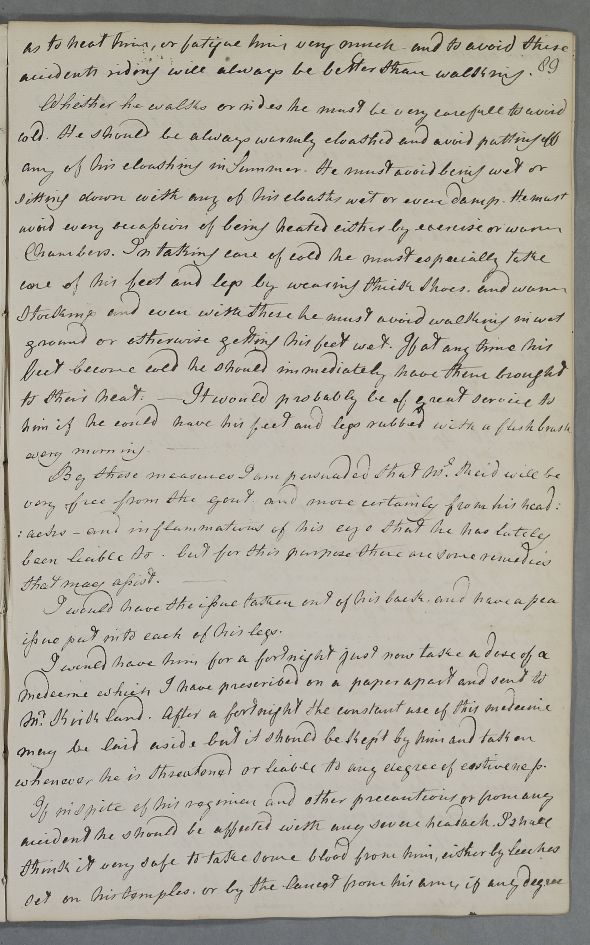 as to heat him, or fatigue him very much and to avoid these
accidents riding will always be better than walking. 89
Whether he walks or rides he must be very carefull to avoid
cold. He should be always warmly cloathed and avoid putting off
any of his cloathing in Summer. He must avoid being wet or
sitting down with any of his cloaths wet or even damp. He must
avoid every occasion of being heated either by exercise or warm
Chambers. In taking care of cold he must especially take
care of his feet and legs by wearing thick shoes. and warm
Stockings and even with these he must avoid walking in wet
ground or otherwise getting his feet wet. If at any time his
feet become cold he should immediately have them brought
to their heat. — It would probably be of great service to
him if he could have his feet and legs rubbed with a flesh brush
every morning. —
By these measures I am persuaded that Mr. Skeid will be
very free from the gout and more certainly from his head:
:achs – and inflammations of his eyes that he has lately
been liable to. but for this purpose there are some remedies
that may assist. —
I would have the issue taken out of his back. and have a pea
issue put into each of his legs.
I would have him for a fortnight just now take a dose of a
medecine which I have prescribed on a paper apart and send to
Mr. Kirkland. After a fortnight the constant use of this medecine
may be laid aside but it should be kept by him and taken
whenever he is threatened or liable to any degree of costiveness.
If in spite of his regimen and other precautions or from any
accident he should be affected with any severe headach. I shall
think it very safe to take some blood from him, either by Leeches
set on his temples. or by the lancet from his arm, if any degree